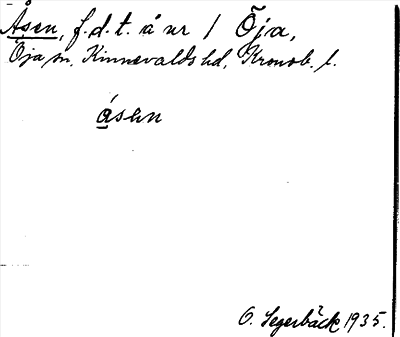 Åsen, f.d.t. å nr 1 Öja,
Öja sn, Kinnevalds hd, Kronob. l.
ásen
O. Segerbäck 1935.